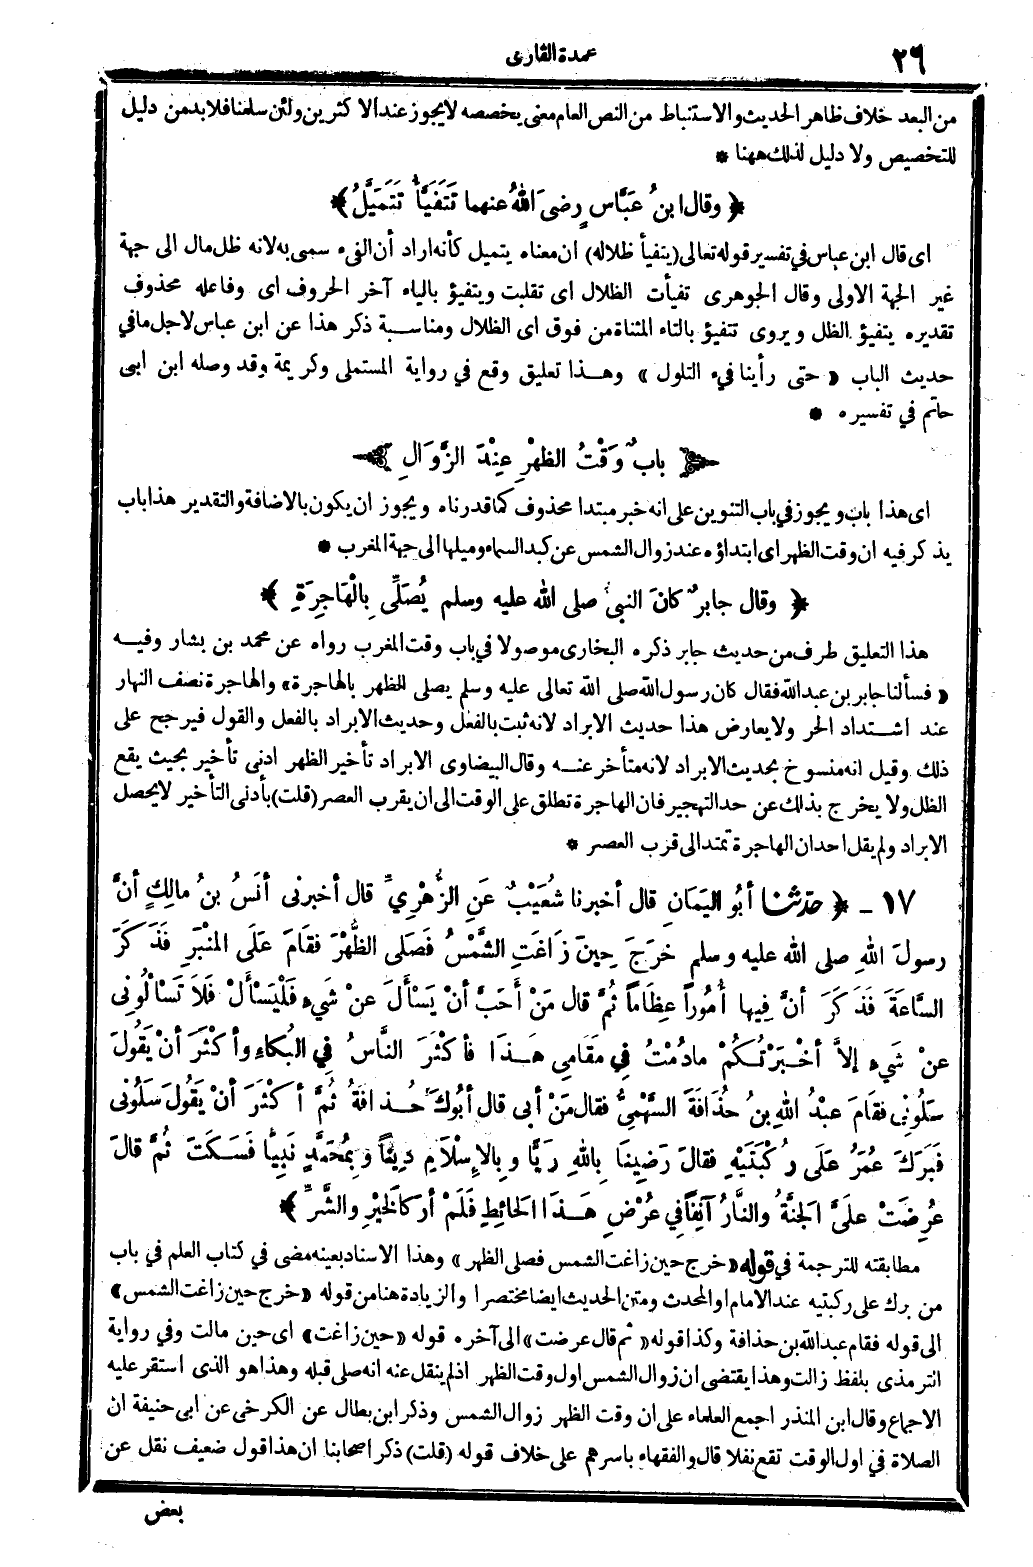 ٢٦
عمدة القارى
من البعد خلاف ظاهر الحديث والاستنباط من النص العام معنى يخصصه لايجوز عند الاكثرين ولئن سلمنا فلابد من دليل
للتخصيص ولا دليل لذلك ههنا *
﴿ وقال ابنُ عَبَّاسٍ رضى اللهُ عنهما تَتَفَيَّأُ تَتَمَيَّلُ ﴾
اى قال ابن عباس في تفسير قوله تعالى (يتفيأ ظلاله) ان معناه يتميل كأنه اراد أن الفىء سمى به لانه ظل مال الى جهة
غير الجهة الاولى وقال الجوهرى تفيأت الظلال اى تقلبت ويتفيؤ بالياء آخر الحروف اى وفاعله محذوف
تقديره يتفيؤ الظل ويروى تتفيؤ بالتاء المثناة من فوق اى الظلال ومناسبة ذكر هذا عن ابن عباس لاجل مافي
حديث الباب « حتى رأينا فيء التلول » وهذا تعليق وقع في رواية المستملى وكريمة وقد وصله ابن ابى
حاتم في تفسيره *
بابٌ وَقْتُ الظهْرِ عِنْدَ الزَّوَالِ
اى هذا باب ويجوز في باب التنوين على انه خبر مبتدا محذوف كما قدرناه ويجوز ان يكون بالاضافة والتقدير هذا باب
يذكر فيه ان وقت الظهر اى ابتداؤه عند زوال الشمس عن كبد السماء وميلها الى جهة المغرب *
﴿ وقال جابرٌ كانَ النبىُّ صلى الله عليه وسلم يُصَلِّى بِالْهَاجِرَةِ ﴾
هذا التعليق طرف من حديث جابر ذكره البخارى موصولا في باب وقت المغرب رواه عن محمد بن بشار وفيه
« فسألنا جابر بن عبدالله فقال كان رسول الله صلى الله تعالى عليه وسلم يصلى الظهر بالهاجرة » والهاجرة نصف النهار
عند اشتداد الحر ولايعارض هذا حديث الابراد لانه ثبت بالفعل وحديث الابراد بالفعل والقول فيرجح على
ذلك وقيل انه منسوخ بحديث الابراد لانه متأخر عنه وقال البيضاوى الابراد تأخير الظهر ادنى تأخير بحيث يقع
الظل ولا يخرج بذلك عن حد التهجير فان الهاجرة تطلق على الوقت الى ان يقرب العصر (قلت) بأدنى التأخير لايحصل
الابراد ولم يقل احد ان الهاجرة تمتد الى قرب العصر *
١٧ ـ ﴿ حدثنا أبُو اليَمانِ قال أخبرنا شُعَيْبٌ عَنِ الزُّهْرِيِّ قال أخبرنى أنَسُ بنُ مالِكٍ أنَّ
رسولَ اللهِ صلى الله عليه وسلم خرَجَ حِينَ زَاغَتِ الشَّمْسُ فَصَلى الظُّهْرَ فقَامَ عَلَى المِنْبَرِ فَذَكَرَ
السَّاعَةَ فَذَكَرَ أنَّ فِيها أُمُوراً عِظَاماً ثُمَّ قال مَنْ أحَبَّ أنْ يَسْألَ عَنْ شَىءٍ فَلْيَسْألْ فَلاَ تَسْألُونِى
عنْ شَيءٍ إلاَّ أخْبَرْتُكُمْ مادُمْتُ فِي مَقَامِى هَذَا فأكْثَرَ النَّاسُ فِي البُكاءِ وأكْثَرَ أنْ يَقُولَ
سَلُونِى فقَامَ عبْدُ اللهِ بنُ حُذَافَةَ السَّهْمِىُّ فقال مَنْ أبى قال أبُوكَ حُذافَةُ ثُمَّ أكْثَرَ أنْ يَقُولَ سَلُونِى
فَبَرَكَ عُمَرُ عَلَى رُكْبَتَيْهِ فقالَ رَضِينَا بِاللهِ رَبًّا وبِالإسْلَامِ دِيناً وَبِمُحَمَّدٍ نَبِيًّا فَسَكَتَ ثُمَّ قالَ
عُرِضَتْ عَلَىَّ الجَنَّةُ والنَّارُ آنِفاً فِي عُرْضِ هَذَا الحَائِطِ فَلَمْ أرَ كالخَيْرِ والشَّرِّ ﴾
مطابقته للترجمة في قوله « خرج حين زاغت الشمس فصلى الظهر » وهذا الاسناد بعينه مضى في كتاب العلم في باب
من برك على ركبتيه عند الامام او المحدث ومتن الحديث ايضا مختصرا والزيادة هنا من قوله « خرج حين زاغت الشمس »
الى قوله فقام عبدالله بن حذافة وكذا قوله « ثم قال عرضت » الى آخره قوله « حين زاغت » اى حين مالت وفي رواية
الترمذى بلفظ زالت وهذا يقتضى ان زوال الشمس اول وقت الظهر اذ لم ينقل عنه انه صلى قبله وهذا هو الذى استقر عليه
الاجماع وقال ابن المنذر اجمع العلماء على ان وقت الظهر زوال الشمس وذكر ابن بطال عن الكرخى عن ابى حنيفة ان
الصلاة في اول الوقت تقع نفلا قال والفقهاء باسرهم على خلاف قوله (قلت) ذكر اصحابنا ان هذا قول ضعيف نقل عن
بعض